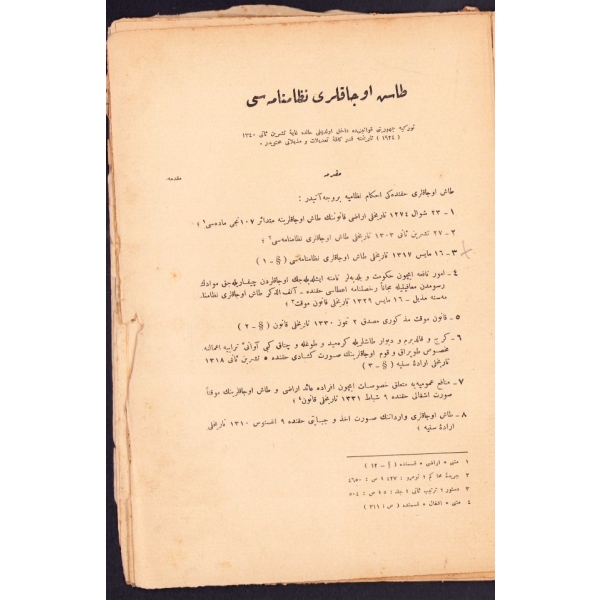 طاش اوجاقلری نظامنامه سی
توركیه جمهوری قوانیننده داخل اولدیغی حالده غایهٔ تشرین ثانی ١٣٤٠
( ١٩٢٤ ) تاریخنه قدر كافهٔ تعدیلات و مذیلاتی محتویدر .
مقدمه
مقدمه.
طاش اوجاقلری حقنده كی احكام نظامیه بروجه آتیدر :
١ - ٢٣ شوال ١٢٧٤ تاریخلی اراضی قانوننك طاش اوجاقلرینه متدائر ١٠٧ نجی ماده سی ١ ؛
٢ - ٢٧ تشرین ثانی ١٣٠٣ تاریخلی طاش اوجاقلری نظامنامه سی ٢ ؛
٣ - ١٦ مایس ١٣١٧ تاریخلی طاش اوجاقلری نظامنامه سی ( § - ١ )
٤ - امور نافعه ایچون حكومت و بلدیه لر نامنه ایشلدیله جك اوجاقلردن چیقاریله جق موادك
رسومدن معافیتیله مجاناً رخصتنامه اعطاسی حقنده - آنف الذكر طاش اوجاقلری نظامنا-
مه سنه مذیل - ١٦ مایس ١٣٢٩ تاریخلی قانون موقت ٣ ؛
٥ - قانون موقت مذكوری مصدق ٢ تموز ١٣٣٠ تاریخلی قانون ( § - ٢ )
٦ - كرج و قالدیرم و دیوار طاشلریله كره مید و طوغله و چناق كبی اوانیٔ ترابیه اعمالنه
مخصوص طوپراق و قوم اوجاقلرینك صورت كشادی حقنده ٥ تشرین ثانی ١٣١٨
تاریخلی ارادهٔ سنیه ( § - ٣ )
٧ - منافع عمومیه یه متعلق خصوصات ایچون افراده عائد اراضی و طاش اوجاقلرینك موقتاً
صورت اشغالی حقنده ٩ شباط ١٣٣١ تاریخلی قانون ٤ ؛
٨ - طاش اوجاقلری وارداتنك صورت اخذ و جبایتی حقنده ٩ اغستوس ١٣١٠ تاریخلی
ارادهٔ سنیه ؛
١ متنی « اراضی » قسمنده ( § - ١٢ )
٢ جریدهٔ محاكم : نومرو : ٤٢٧ ؛ ص : ٤٦٥٠
٣ دستور : ترتیب ثانی ؛ جلد : ٥ ؛ ص : ٥٠٤
٤ متنی « اشغال » قسمنده ( ص : ٣١١ )